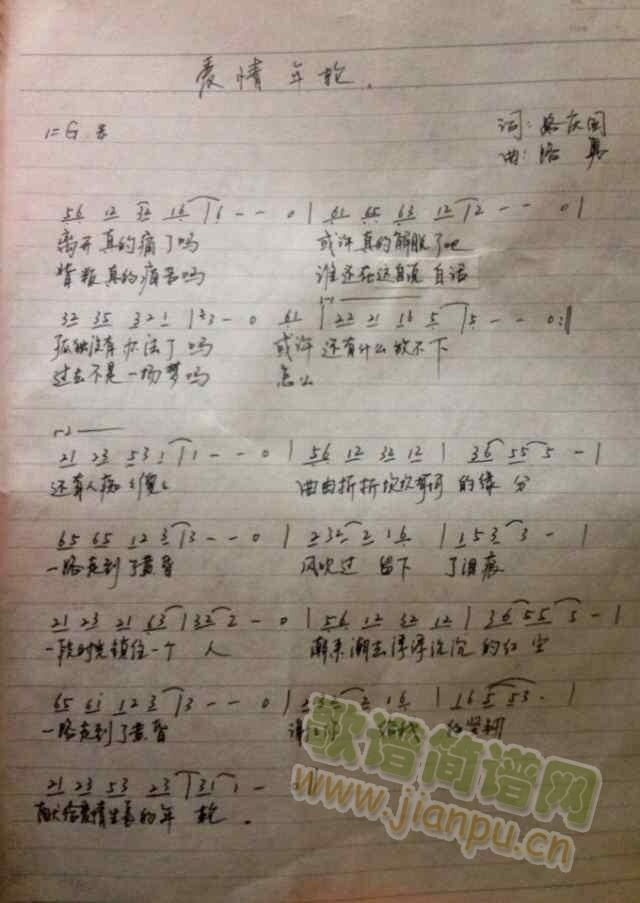 爱情年轮.
1=G
词:
曲:
56 12 32 16 | 6 - - 0 | 61 65 63 12 | 2 - - 0 |
离开真的痛了吗 或许真的解脱了吧
背叛真的痛苦吗 谁还在这自说自话
32 35 321 | 23 - 0 61 | 22 21 16 5 | 5 - - 0 :|
孤独没有办法了吗 或许还有什么放不下
过去不是一场梦吗 怎么
21 23 531 | 1 - - 0 | 56 12 32 12 | 36 55 5 - |
还有人 曲曲折折坎坎坷坷的缘分
65 65 12 3 | 3 - - 0 | 232 2 16 | 153 3 - |
一路走到了黄昏 风吹过 留下了泪痕
21 23 21 63 | 32 2 - 0 | 56 12 32 12 | 36 55 5 - |
一段时光锁住一个人 潮来潮去浮浮沉沉的红尘
65 61 12 3 | 3 - - 0 | 16 | 16 5 53 - |
一路走到了黄昏
21 23 53 23 | 31 1 -
献给爱情生长的年轮.
歌谱简谱网
www.jianpu.cn